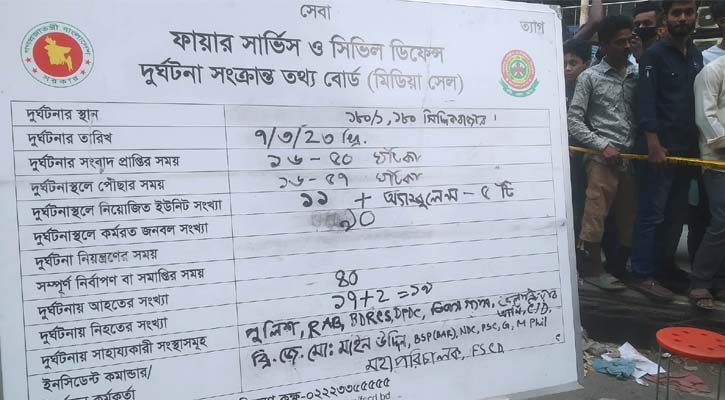 সেবা
ত্যাগ
ফায়ার সার্ভিস ও সিভিল ডিফেন্স
দুর্ঘটনা সংক্রান্ত তথ্য বোর্ড (মিডিয়া সেল)
দুর্ঘটনার স্থান ১৮০/১, ১৮০ সিদ্দিকবাজার।
দুর্ঘটনার তারিখ ৭/৩/২৩ খ্রি.
দুর্ঘটনার সংবাদ প্রাপ্তির সময় ১৬-৫০ ঘটিকা
দুর্ঘটনাস্থলে পৌছার সময় ১৬-৫৭ ঘটিকা
দুর্ঘটনাস্থলে নিয়োজিত ইউনিট সংখ্যা ১১ + অ্যাম্বুলেন্স - ৫ টি
দুর্ঘটনাস্থলে কর্মরত জনবল সংখ্যা
দুর্ঘটনা নিয়ন্ত্রণের সময়
সম্পূর্ণ নির্বাপণ বা সমাপ্তির সময়
দুর্ঘটনায় আহতের সংখ্যা ৪০
দুর্ঘটনায় নিহতের সংখ্যা ১৭+2=১৯
দুর্ঘটনায় সাহায্যকারী সংস্থাসমূহ পুলিশ, RAB, BDRCS, DPDC, আর্মি, CID,
ইনসিডেন্ট কমান্ডার/ ব্রি. জে. মো: মাইন উদ্দিন, BSP(BAR), NDC, PSC, G, M Phil
কর্মকর্তা মহাপরিচালক, FSCD
কক্ষ-০২২২৩৩৫৫৫৫৫